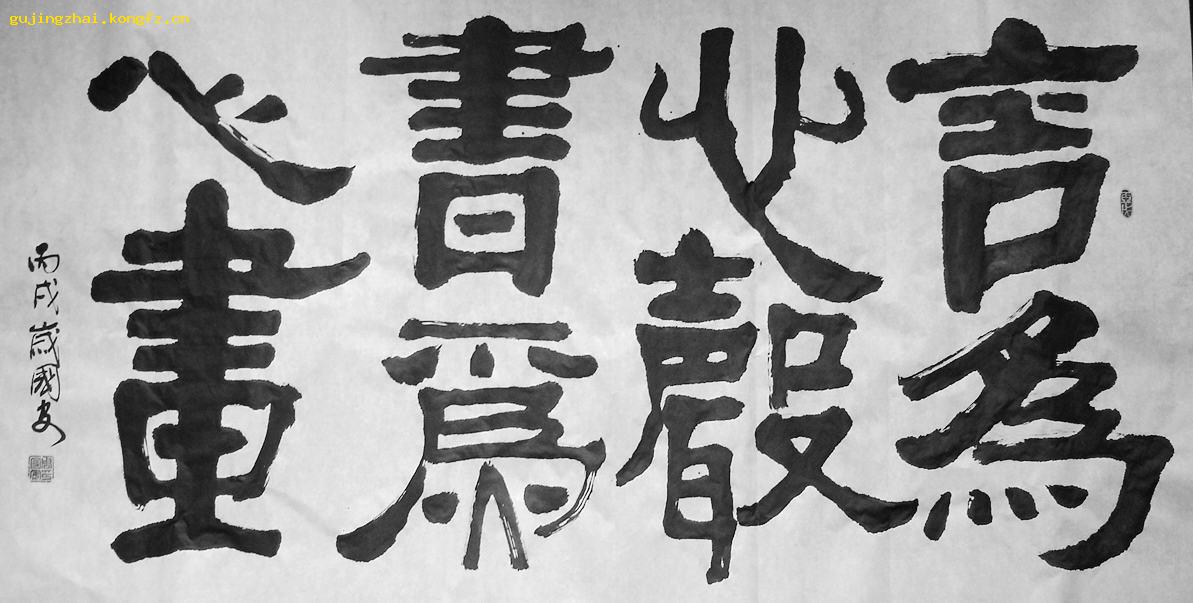 gujingzhai.kongfz.cn
言為
心聲
書爲
心畫
丙戌歲國安